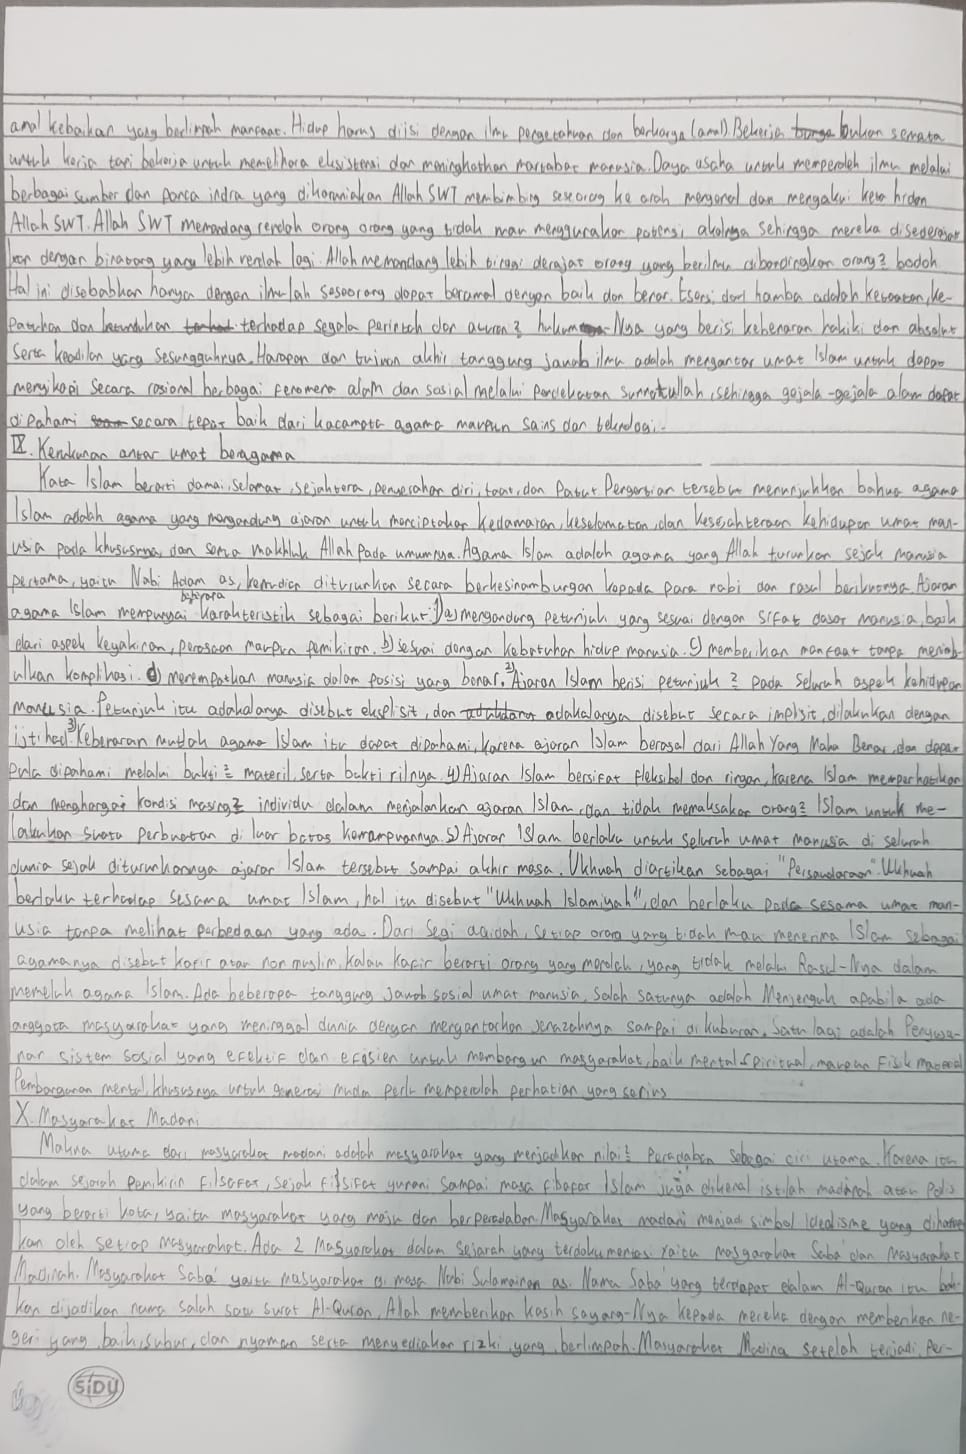 amal kebaikan yang berlimpah manfaat. Hidup harus diisi dengan ilmu pengetahuan dan berkarya (amal). Bekerja bukan semata
untuk kerja tapi bekerja untuk memelihara eksistensi dan meningkatkan martabat manusia. Daya usaha untuk memperoleh ilmu melalui
berbagai sumber dan panca indra yang dikaruniakan Allah SWT membimbing seseorang ke arah mengenal dan mengakui kehadiran
Allah SWT. Allah SWT memandang rendah orang orang yang tidak mau menggunakan potensi akalnya sehingga mereka disederajat
kan dengan binatang yang lebih rendah lagi. Allah memandang lebih tinggi derajat orang yang berilmu dibandingkan orang2 bodoh.
Hal ini disebabkan hanya dengan ilmulah seseorang dapat beramal dengan baik dan benar. Esensi dari hamba adalah ketaatan, ke-
patuhan dan ketundukan terhadap segala perintah dan aturan2 hukum-Nya yang berisi kebenaran hakiki dan absolut
serta keadilan yang sesungguhnya. Harapan dan tujuan akhir tanggung jawab ilmu adalah mengantar umat Islam untuk dapat
menyikapi secara rasional berbagai fenomena alam dan sosial melalui pendekatan sunnatullah, sehingga gejala-gejala alam dapat
dipahami secara tepat baik dari kacamata agama maupun sains dan teknologi.
IX. Kerukunan antar umat beragama
Kata Islam berarti damai, selamat, sejahtera, penyerahan diri, taat, dan patut. Pengertian tersebut menunjukkan bahwa agama
Islam adalah agama yang mengandung ajaran untuk menciptakan kedamaian, keselamatan, dan kesejahteraan kehidupan umat man-
usia pada khususnya, dan semua makhluk Allah pada umumnya. Agama Islam adalah agama yang Allah turunkan sejak manusia
pertama, yaitu Nabi Adam as, kemudian diturunkan secara berkesinambungan kepada para nabi dan rasul berikutnya. Ajaran
agama Islam mempunyai beberapa karakteristik sebagai berikut: 1) a) mengandung petunjuk yang sesuai dengan sifat dasar manusia, baik
dari aspek keyakinan, perasaan maupun pemikiran. b) sesuai dengan kebutuhan hidup manusia. c) memberikan manfaat tanpa menimb
ulkan komplikasi. d) menempatkan manusia dalam posisi yang benar. 2) Ajaran Islam berisi petunjuk2 pada seluruh aspek kehidupan
manusia. Petunjuk itu adakalanya disebut eksplisit, dan adakalanya disebut secara implisit, dilakukan dengan
ijtihad. 3) Kebenaran mutlak agama Islam itu dapat dipahami, karena ajaran Islam berasal dari Allah Yang Maha Benar, dan dapat
pula dipahami melalui bukti2 materil, serta bukti rilnya. 4) Ajaran Islam bersifat fleksibel dan ringan, karena Islam memperhatikan
dan menghargai kondisi masing2 individu dalam menjalankan ajaran Islam, dan tidak memaksakan orang2 Islam untuk me-
lakukan suatu perbuatan di luar batas kemampuannya. 5) Ajaran Islam berlaku untuk seluruh umat manusia di seluruh
dunia sejak diturunkannya ajaran Islam tersebut sampai akhir masa. Ukhuah diartikan sebagai "Persaudaraan". Ukhuah
berlaku terhadap sesama umat Islam, hal itu disebut "Ukhuah Islamiyah", dan berlaku pada sesama umat man-
usia tanpa melihat perbedaan yang ada. Dari segi aqidah, setiap orang yang tidak mau menerima Islam sebagai
agamanya disebut kafir atau non muslim. Kalau kafir berarti orang yang menolak, yang tidak melalui Rasul-Nya dalam
memeluk agama Islam. Ada beberapa tanggung jawab sosial umat manusia, salah satunya adalah Menjenguk apabila ada
anggota masyarakat yang meninggal dunia dengan mengantarkan jenazahnya sampai di kuburan. Satu lagi adalah Penyusu-
nan sistem sosial yang efektif dan efisien untuk membangun masyarakat, baik mental spiritual, maupun fisik material
Pembangunan mental, khususnya untuk generasi muda perlu memperoleh perhatian yang serius
X. Masyarakat Madani
Makna utama dari masyarakat madani adalah masyarakat yang menjadikan nilai2 Peradaban sebagai ciri utama. Karena itu
dalam sejarah pemikirin filsafat, sejak filsifat yunani sampai masa Islam juga dikenal istilah madinah atau Polis
yang berarti kota, yaitu masyarakat yang maju dan berperadaban. Masyarakat madani menjadi simbol idealisme yang diharap
kan oleh setiap masyarakat. Ada 2 Masyarakat dalam sejarah yang terdokumentasi yaitu masyarakat Saba' dan Masyarakat
Madinah. Masyarakat Saba' yaitu masyarakat di masa Nabi Sulaiman as. Nama Saba' yang terdapat dalam Al-Quran itu bah-
kan dijadikan nama salah satu surat Al-Quran, Allah memberikan kasih sayang-Nya kepada mereka dengan memberikan ne-
geri yang baik, subur, dan nyaman serta menyediakan rizki yang berlimpah. Masyarakat Madina setelah terjadi Per-
SiDU